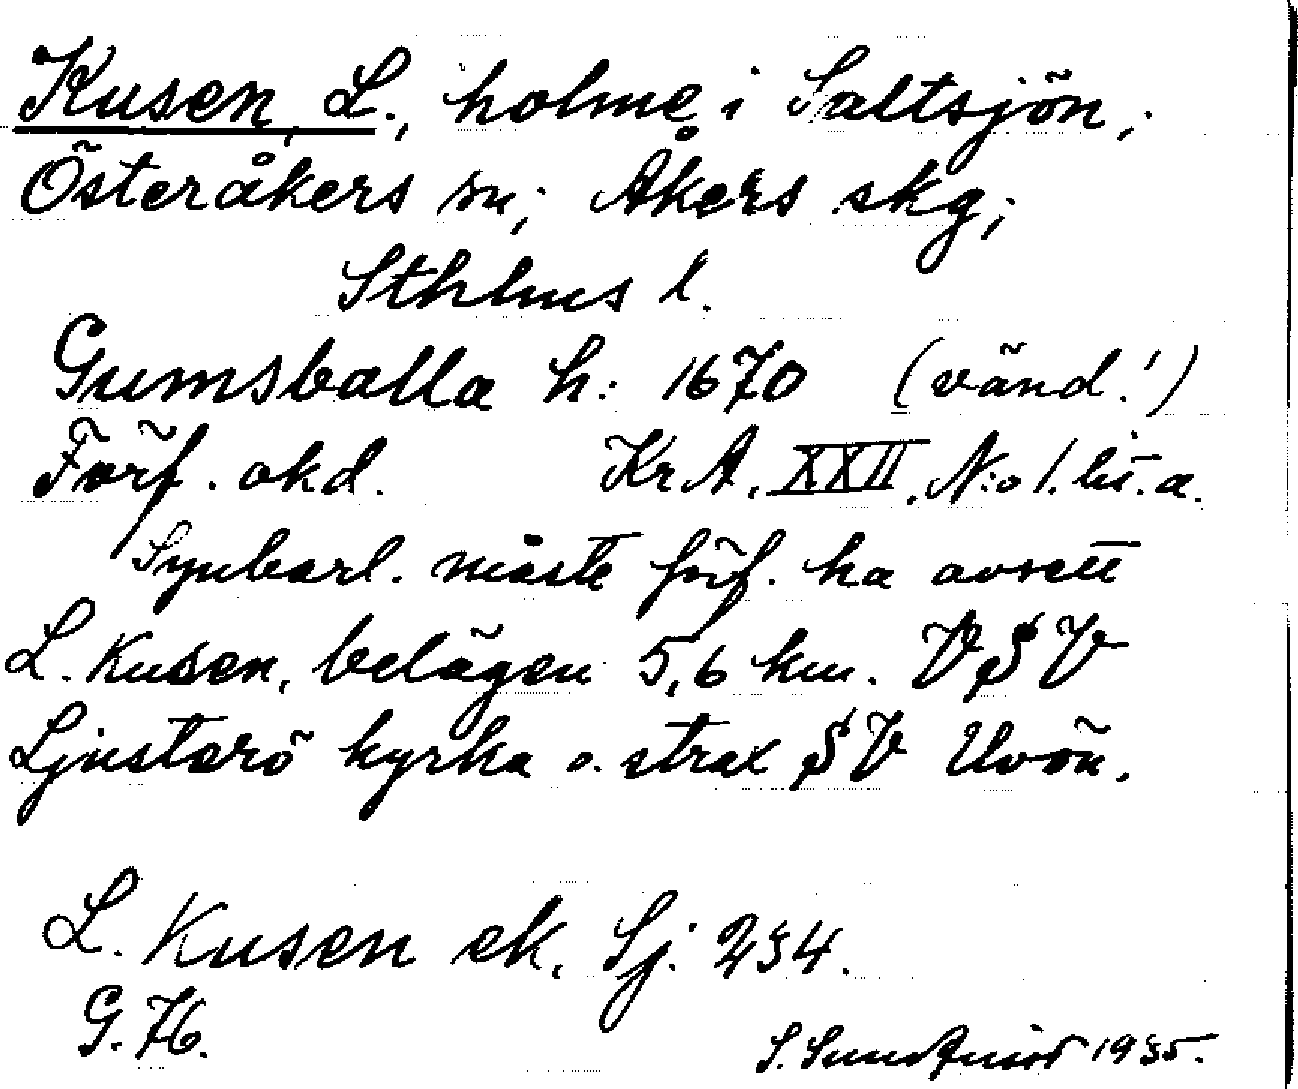 Kusen, L., holme i Saltsjön,
Österåkers sn; Åkers skg;
Sthlms l.
Gumsballa h: 1670 (vänd!)
Förf. okd. KrA. XXII. N:o 1. lit. a.
Synbarl. måste förf. ha avsett
L. Kusen, belägen 5,6 km. VSV
Ljusterö kyrka o. strax SV Uvön.
L. Kusen ek. Sj. 234.
G. 76.
S. Sundquist 1935.